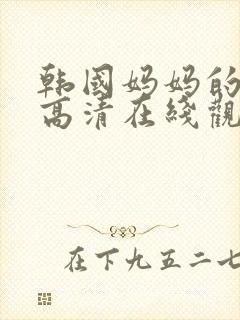 韩國妈妈的
高清在綫觀
在下九五二七